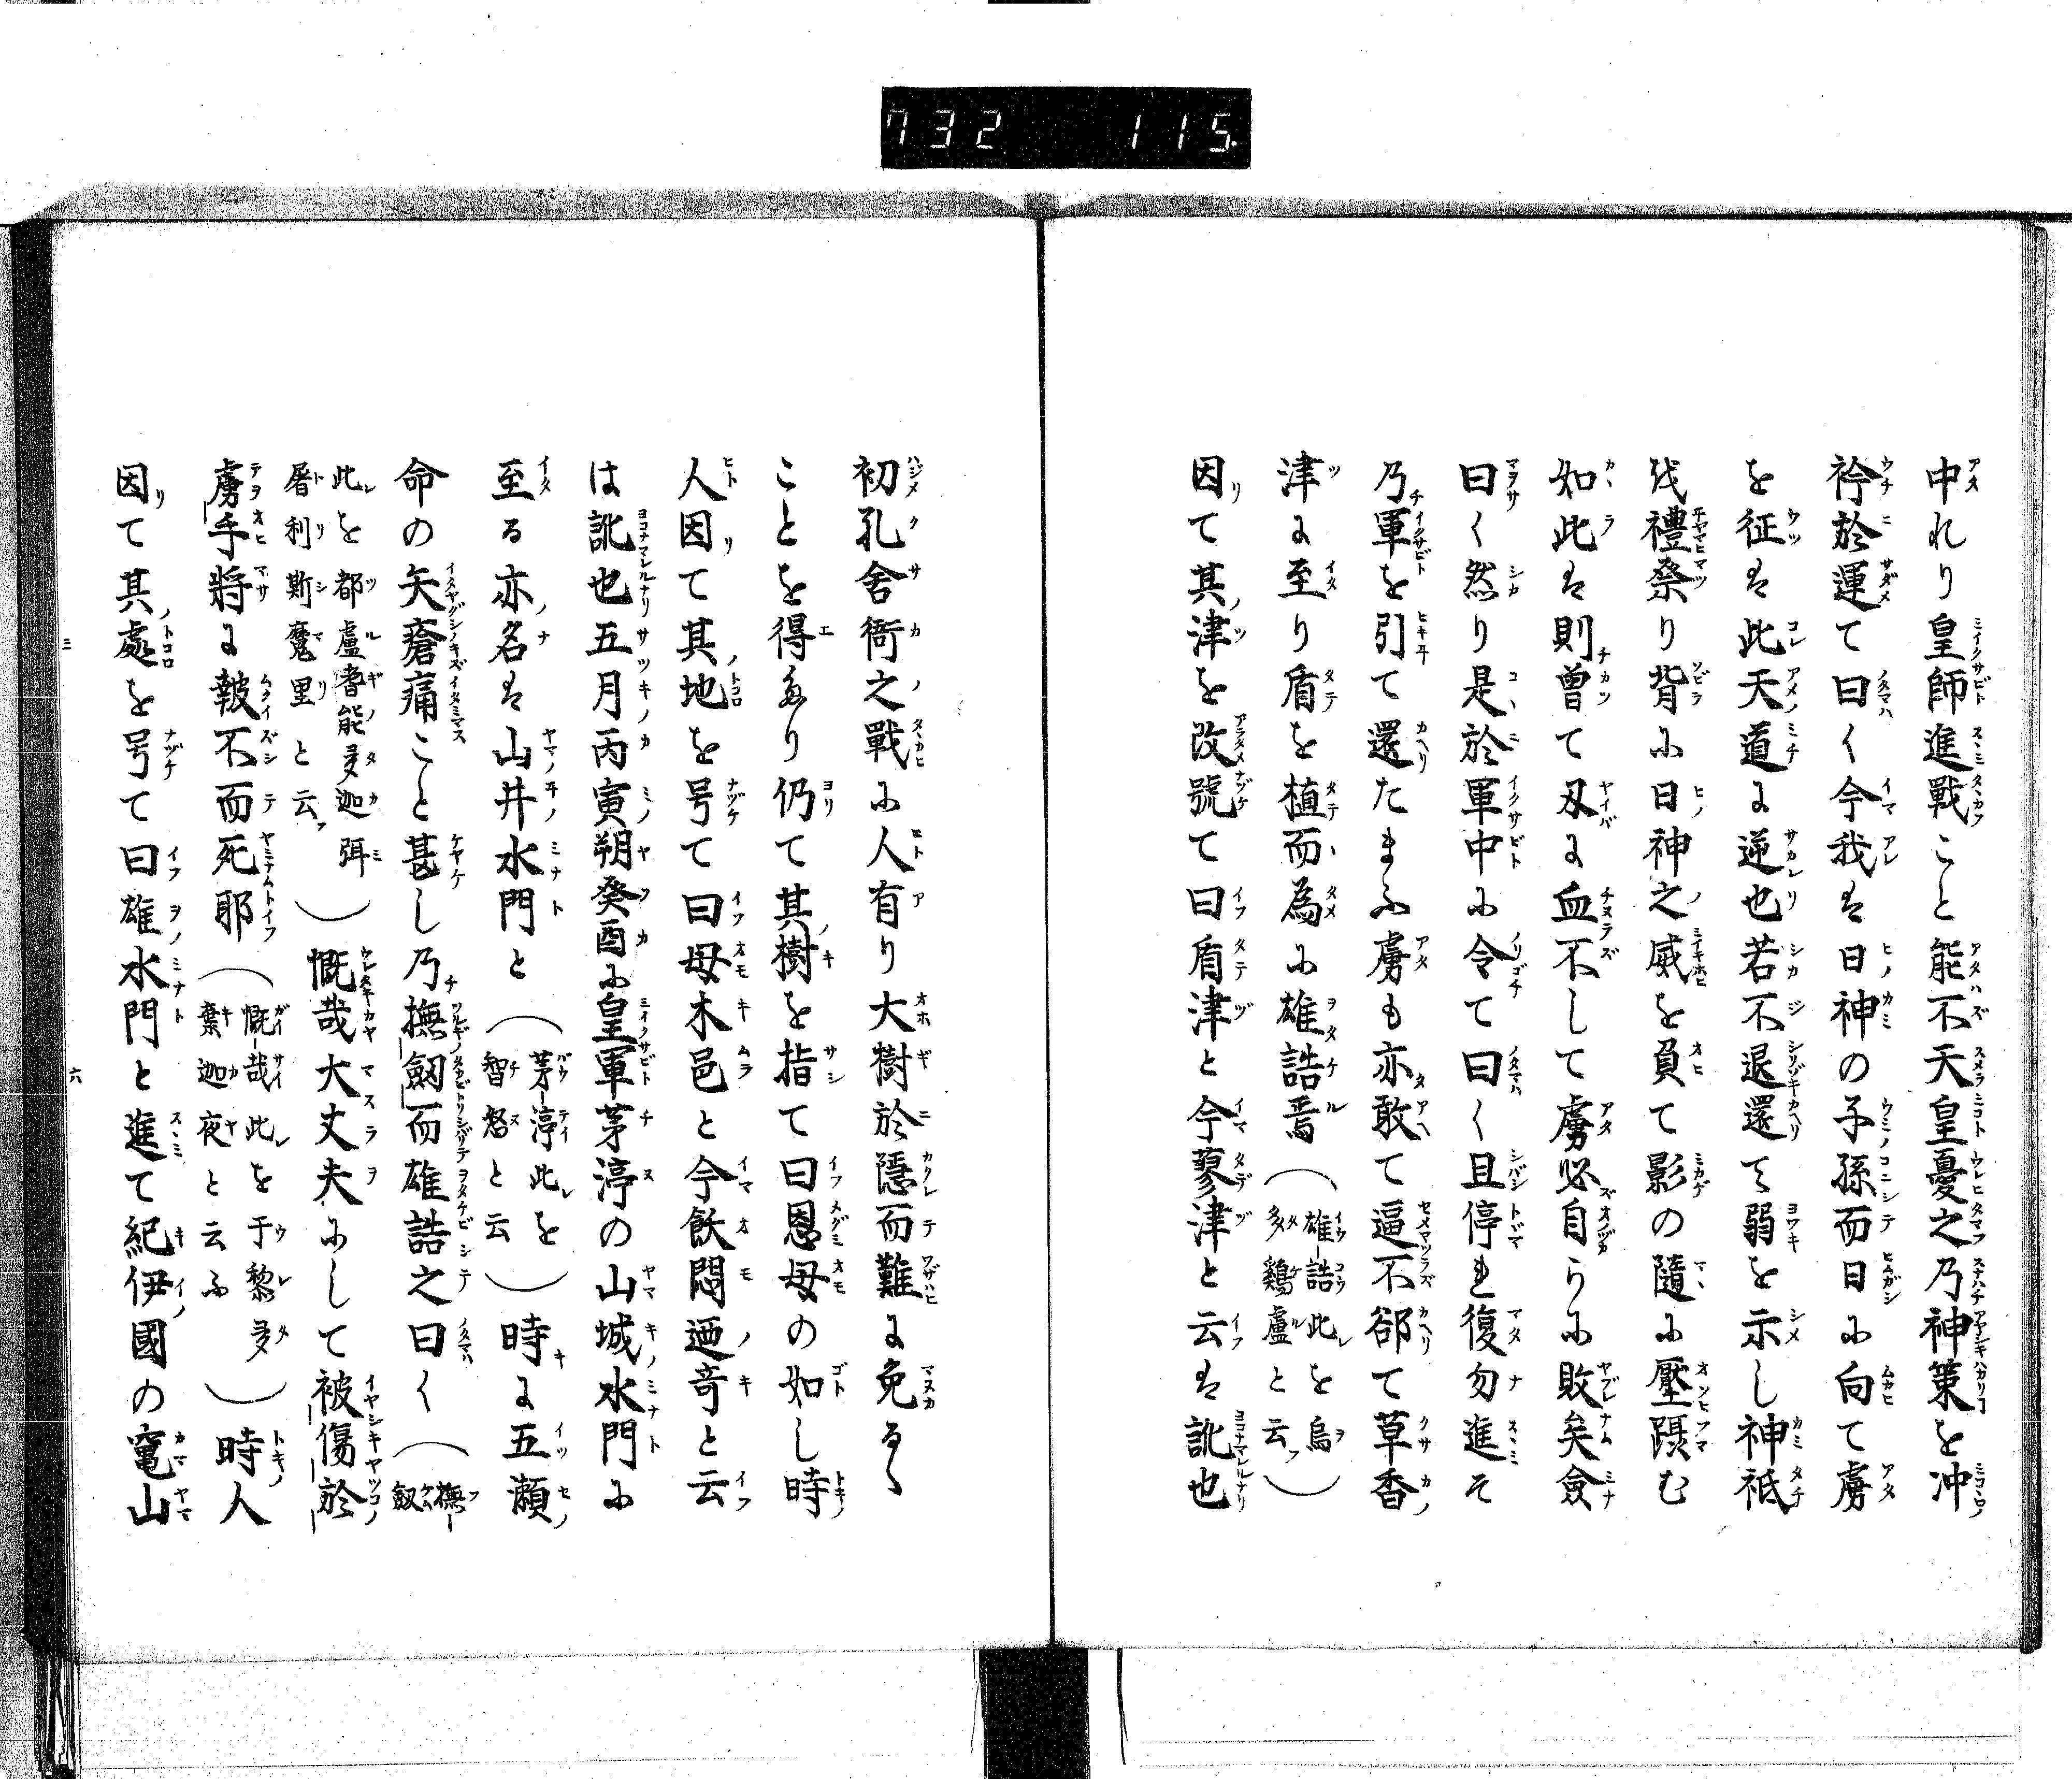 732 115.
中れり皇師進戰こと能不天皇憂之乃神策を冲
衿於運て曰く今我は日神の子孫而日に向て虜
を征は此天道に逆也若不退還て弱を示し神祇
を禮祭り背に日神之威を負て影の隨に壓躡む
如此は則曾て刃に血不して虜必自らに敗矣僉
曰く然り是於軍中に令て曰く且停れ復勿進そ
乃軍を引て還たまふ虜も亦敢て逼不郤て草香
津に至り盾を植而為に雄誥焉(雄誥此を烏多鷄盧と云)
因て其津を改號て曰盾津と今蓼津と云は訛也
初孔舍衙之戰に人有り大樹於隱而難に免るゝ
ことを得たり仍て其樹を指て曰恩母の如し時
人因て其地を号て曰母木邑と今飫悶廼奇と云
は訛也五月丙寅朔癸酉に皇軍茅渟の山城水門に
至る亦名は山井水門と(茅渟此を智怒と云)時に五瀬
命の矢瘡痛こと甚し乃撫劔而雄誥之曰く(撫劔
此を都盧耆能多迦弭屠利斯魔里と云)慨哉大丈夫にして被傷於
虜手將に報不而死耶(慨哉此を于黎多棄迦夜と云ふ)時人
因て其處を号て曰雄水門と進て紀伊國の竃山
三
六